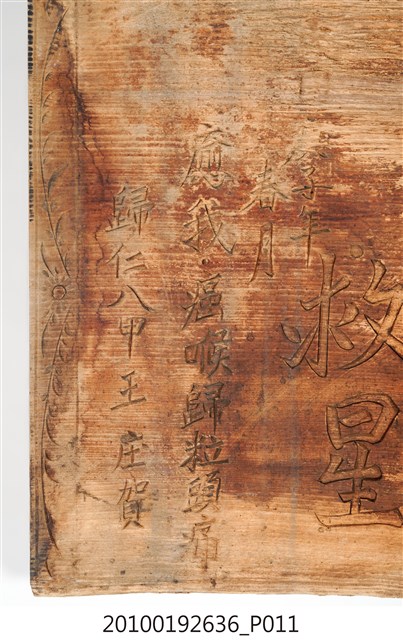 救星
年
春月
應我癌喉歸粒頭痛
歸仁八甲王庄賀
20100192636_P011